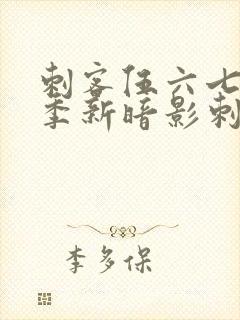 刺客伍六七
季新暗影刺
李多保